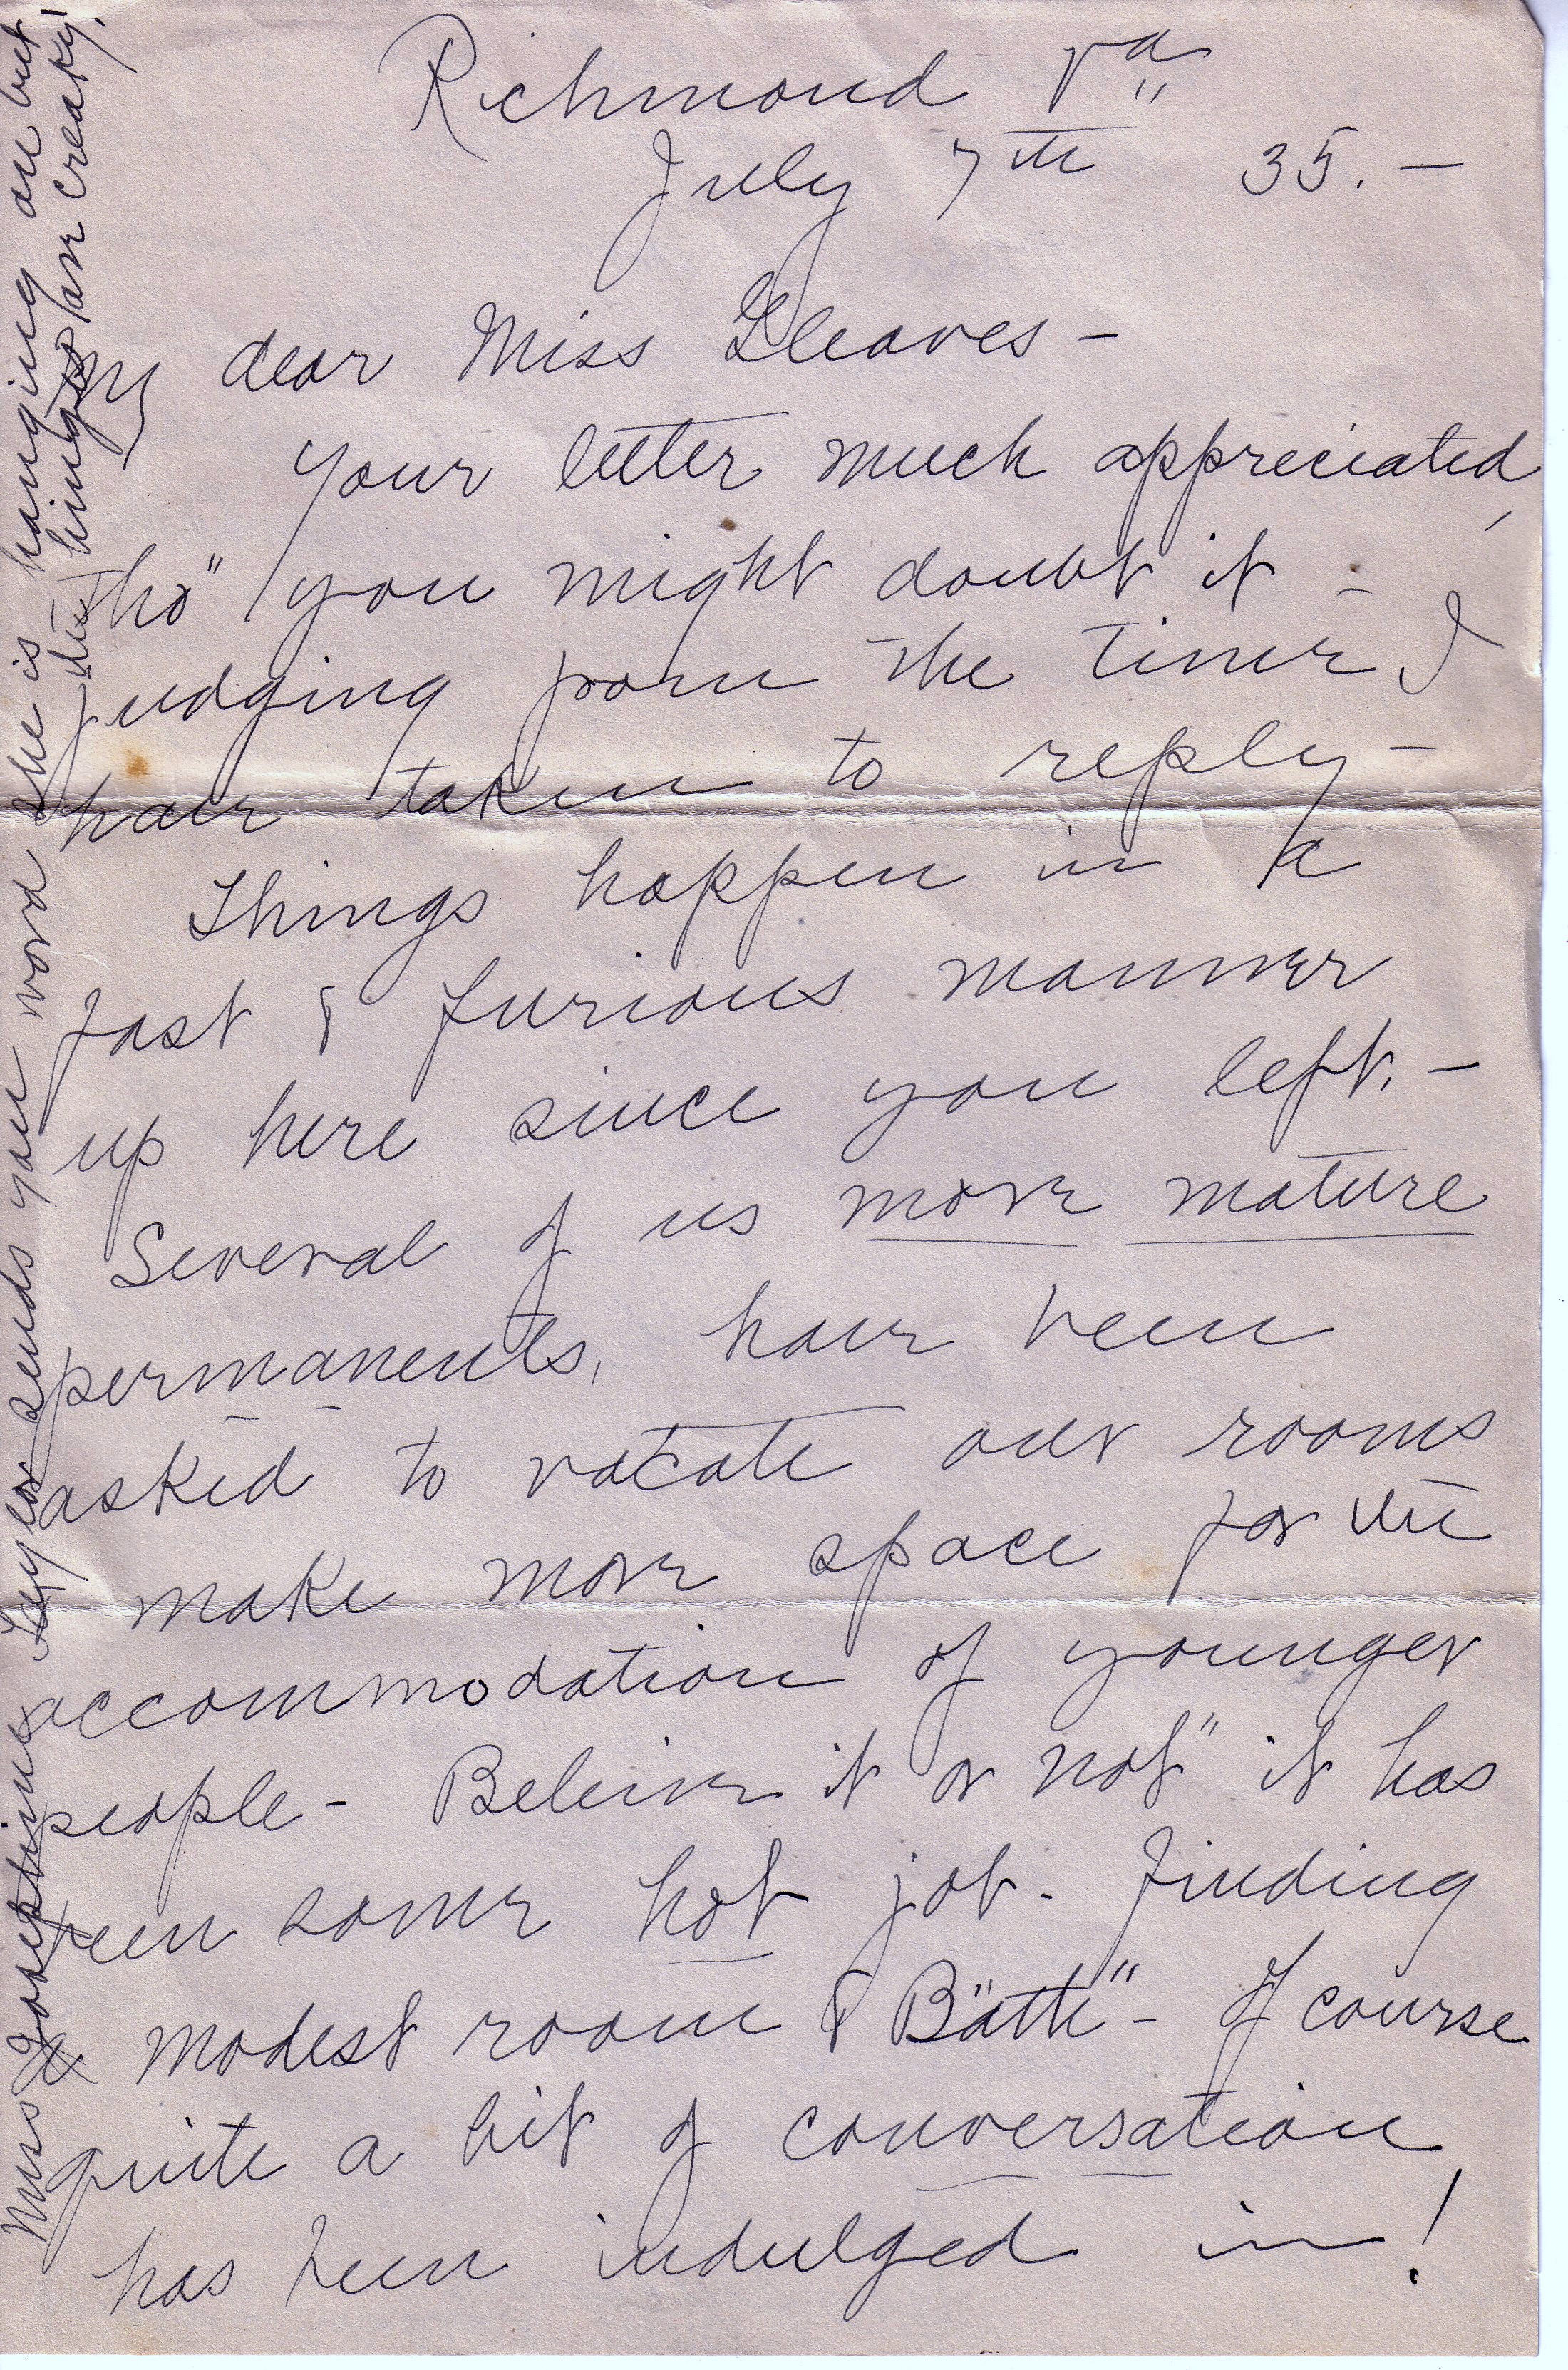 Richmond Va"
July 7th 35. –
My dear Miss Gleaves –
Your letter much appreciated,
tho" you might doubt it –
judging from the time I
have taken to reply –
Things happen in a
fast & furious manner
up here since you left. –
Several of us more mature
permanents, have been
asked to vacate our rooms
make more space for the
accommodation of younger
people – Beleive it or not" it has
been some hot job. finding
a modest room & B"ath" – Of course
quite a bit of conversation
has been indulged in!
Miss Josephine Taylor sends you word she is hanging on but
the hinges are creaky!